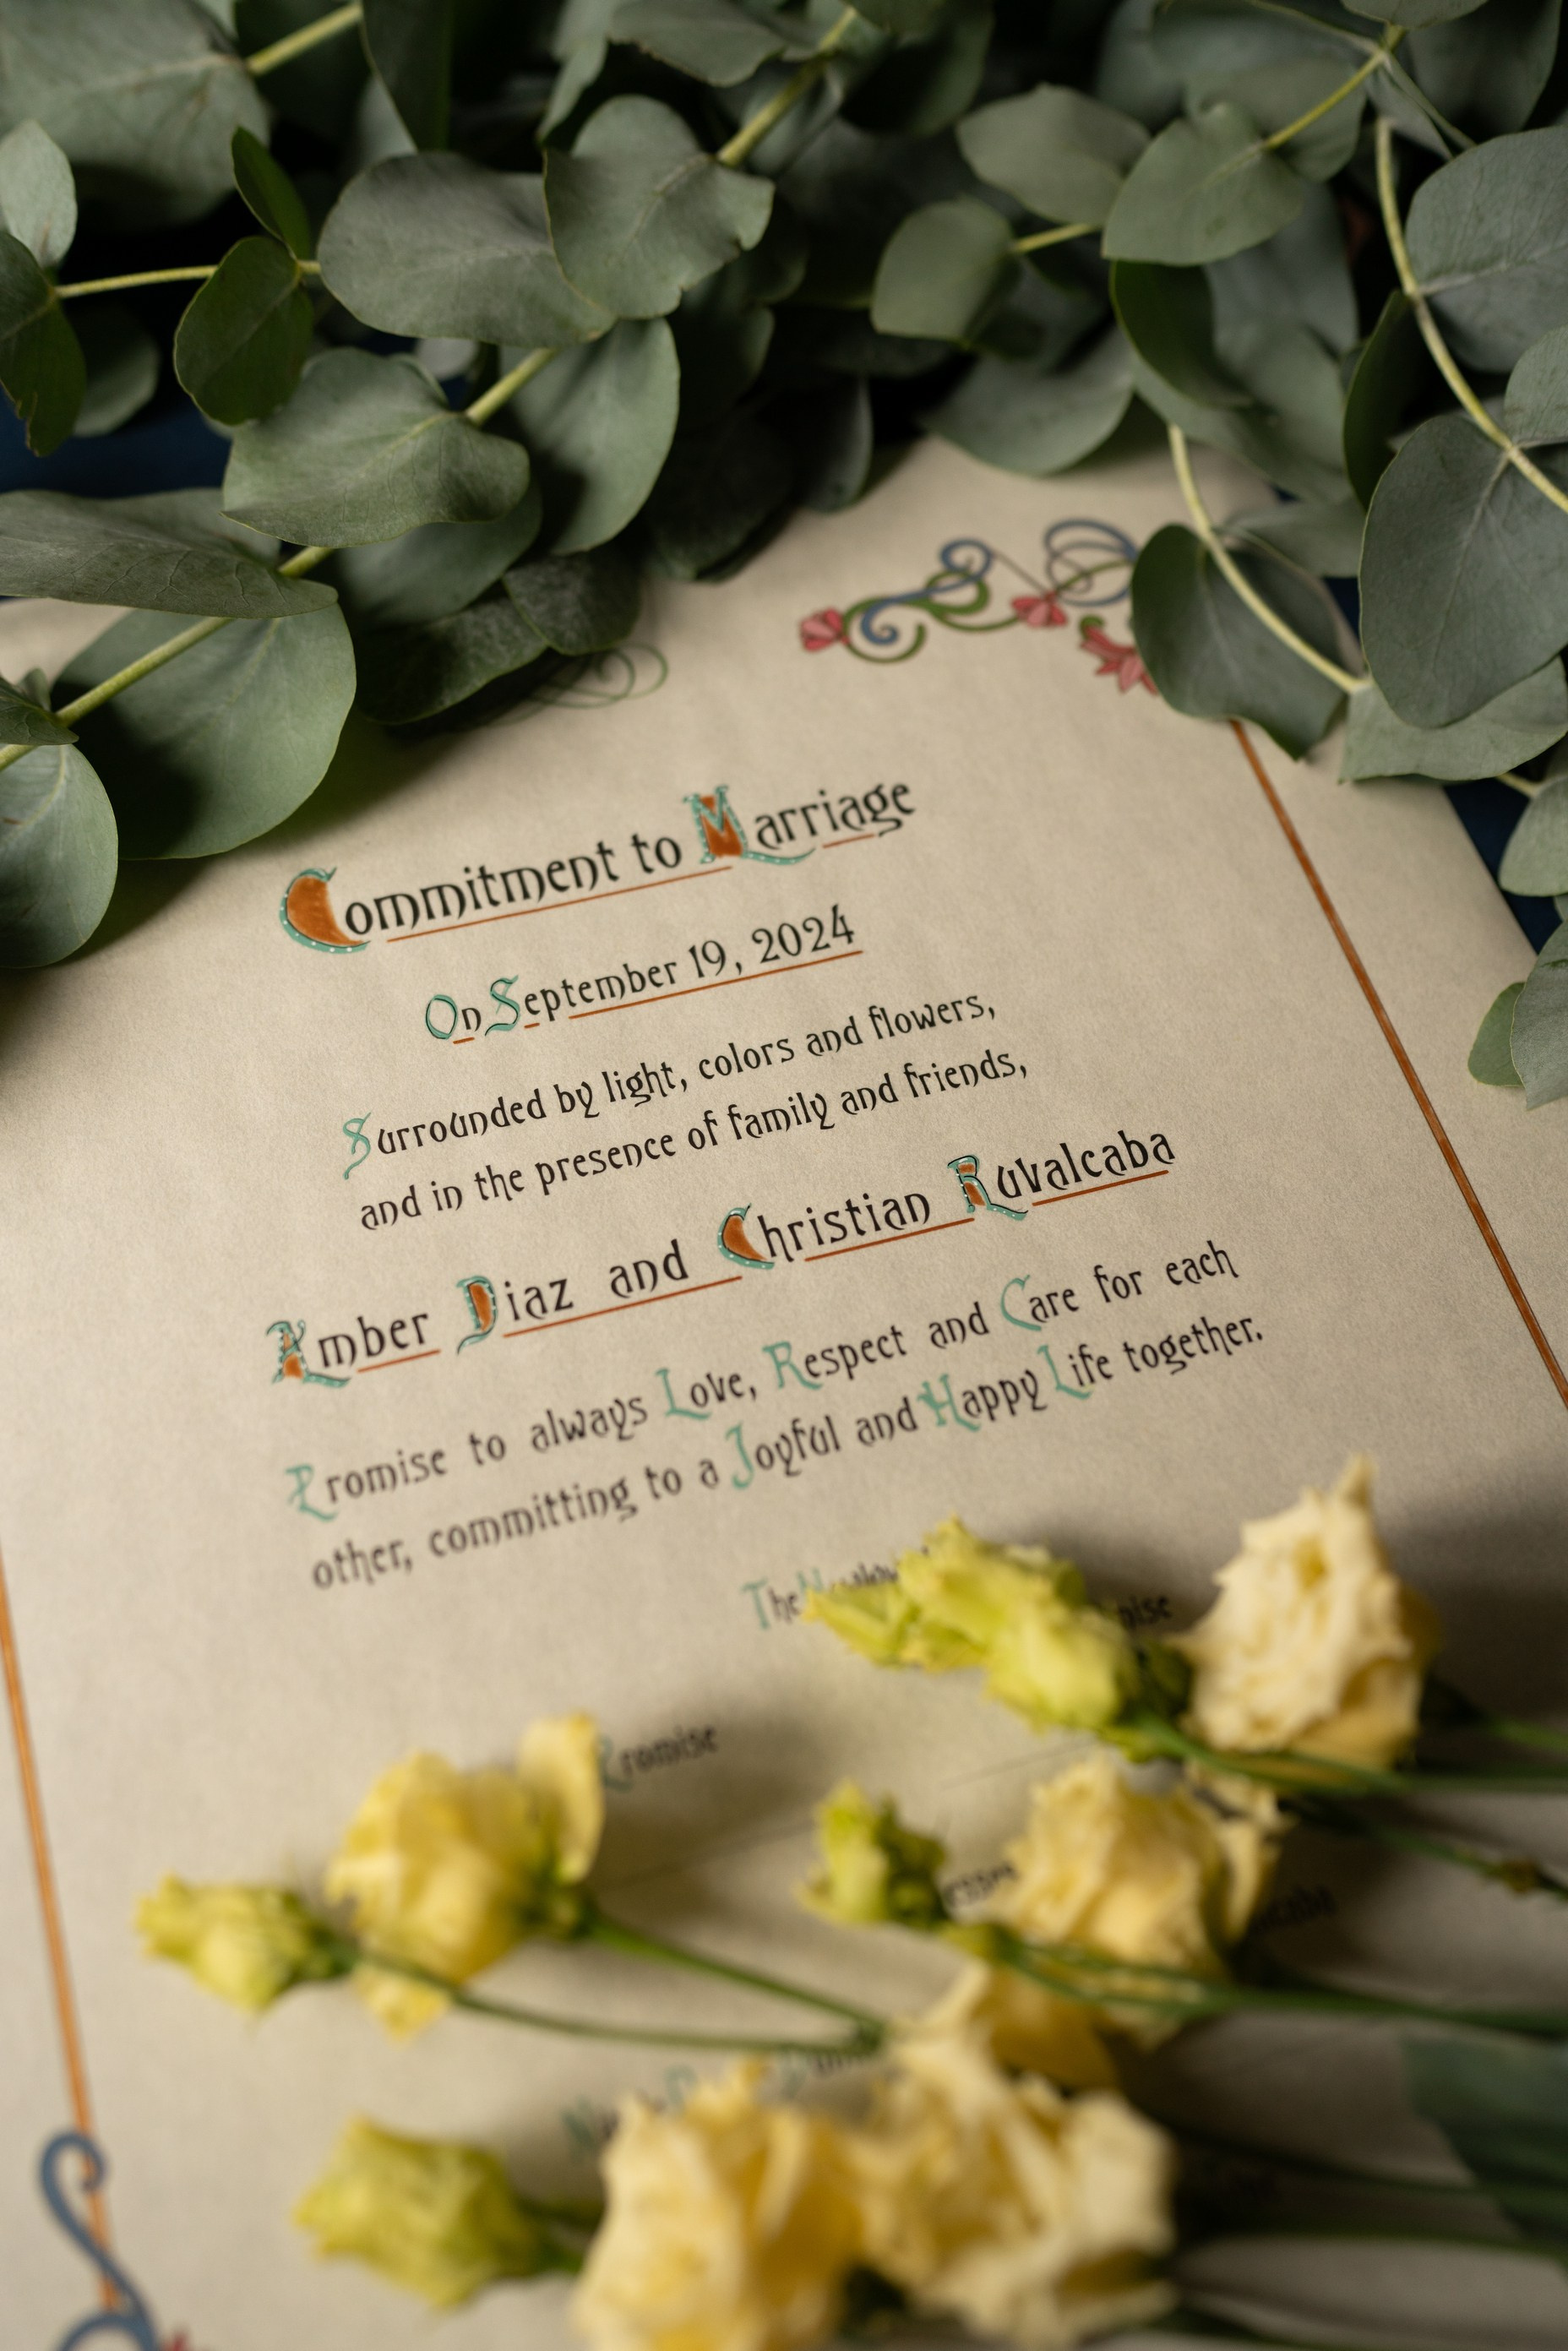 Commitment to Marriage
On September 19, 2024
Surrounded by light, colors and flowers,
and in the presence of family and friends,
Amber Diaz and Christian Ruvalcaba
Promise to always Love, Respect and Care for each
other, committing to a Joyful and Happy Life together.
The
Promise